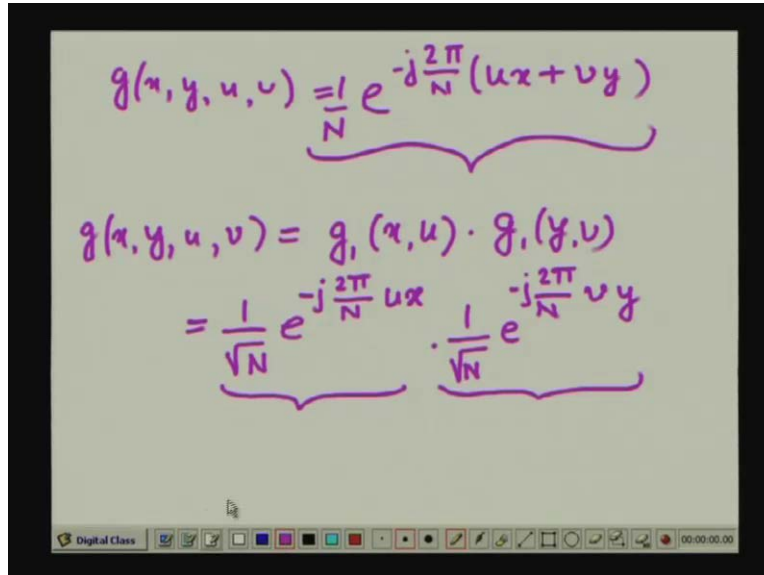 g(x, y, u, v) = 1/N e^{-j 2π/N (ux + vy)}
g(x, y, u, v) = g₁(x, u) · g₁(y, v)
= 1/√N e^{-j 2π/N ux} · 1/√N e^{-j 2π/N vy}
Digital Class 00:00:00.00